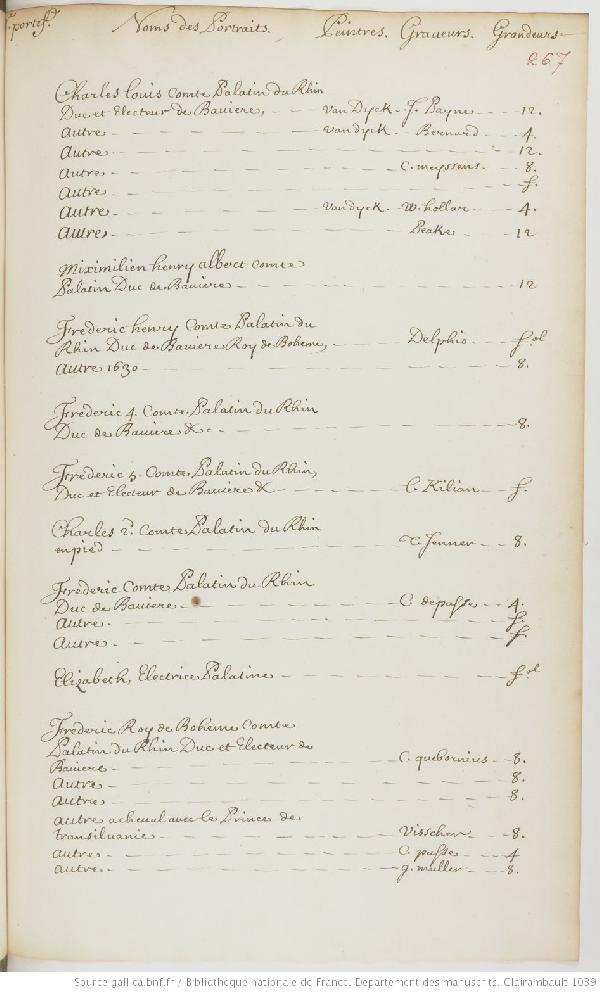 portef. Noms des Portraits. Peintres. Graveurs. Grandeurs
267
Charles Louis Comte Palatin du Rhin
Duc et Electeur de Baviere, van Dyck J. Payne 12.
Autre vandyck Bernard 4.
Autre 12.
Autre C. meyssens. 8.
Autre f.
Autre vandyck W. hollar 4.
Autre Peake 12
Miximilien henry albert Comte
Palatin Duc de Baviere 12
Frederic henry Comte Palatin du
Rhin Duc de Baviere Roy de Boheme, Delphis fol
Autre 1630 8.
Frederic 4. Comte Palatin du Rhin
Duc de Baviere &c 8.
Frederic 5. Comte Palatin du Rhin,
Duc et Electeur de Baviere & L. Kilian f.
Charles 2. Comte Palatin du Rhin
enpied T. Jenner 8.
Frederic Comte Palatin du Rhin
Duc de Baviere C. de passe 4.
Autre f.
Autre f
Elizabeth, Electrice Palatine fol
Frederic Roy de Boheme Comte
Palatin du Rhin Duc et Electeur de
Baviere C. queborinus 8.
Autre 8.
Autre 8.
autre acheval avec le Prince de
transilvanie Visscher 8.
Autre C. passe 4
Autre g. muller 8.
Source gallica.bnf.fr / Bibliothèque nationale de France. Département des manuscrits. Clairambault 1039